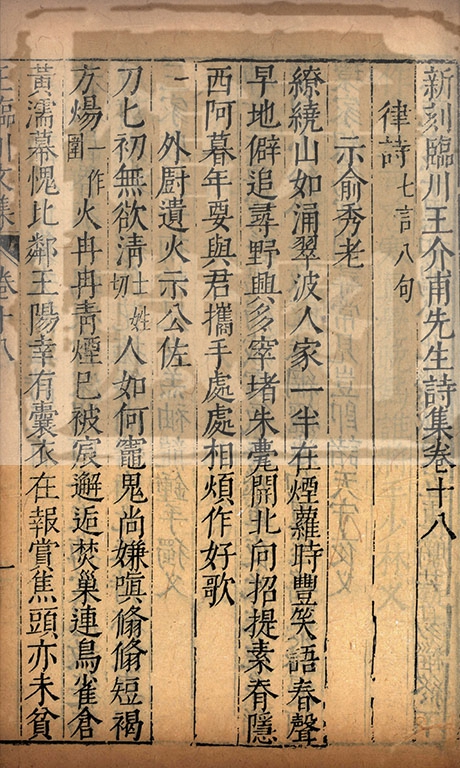 新刻臨川王介甫先生詩集卷十八
律詩七言八句
示俞秀老
繚繞山如涌翠波人家一半在煙蘿時豐笑語春聲
早地僻追尋野興多窣堵朱甍開北向招提素脊隱
西阿暮年要與君攜手處處相煩作好歌
一
外厨遺火示公佐
刀匕初無欲清切士姓人如何竈鬼尚嫌嗔翛翛短褐
方煬一作圍火冉冉青煙已被宸邂逅焚巢連鳥雀倉
黃濡幕愧比鄰王陽幸有囊衣在報賞焦頭亦未貧
王臨川文集 卷十八
一